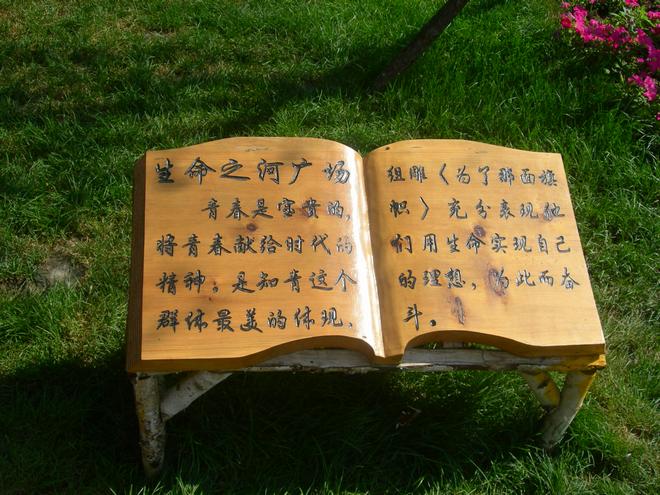 生命之河广场
青春是宝贵的，
将青春献给时代的
精神。是知青这个
群体最美的体现，
组雕〈为了那面旗
帜〉充分表现他
们用生命实现自己
的理想，为此而奋
斗。